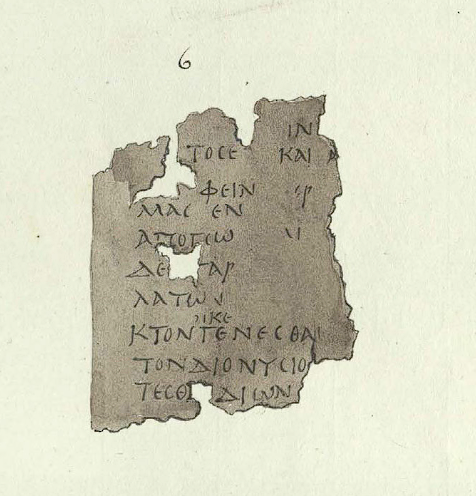 6
ΙΝ
ΤΟϹΕ ΚΑΙ
ΦΕΙΝ
ΜΑϹ ΕΝ
ΔΕ ΓΑΡ
ΛΑΤΩ
ΙΚΕ
ΚΤΟΝΓΕΝΕϹΘΑΙ
ΤΟΝΔΙΟΝΥϹΙΟ
ΤΕϹΘ ΔΙΩΝ